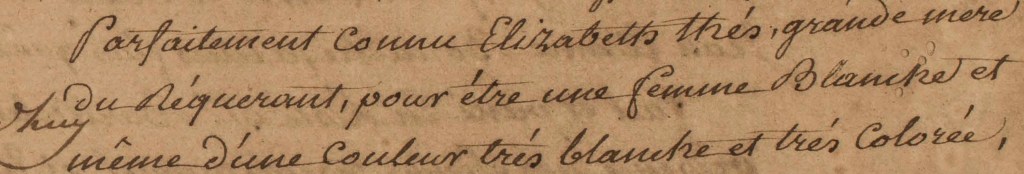 Parfaitement connu Elizabeth thés, grande mere
du Réquerant, pour étre une femme Blanche et
même d'une couleur trés blanche et trés colorée,